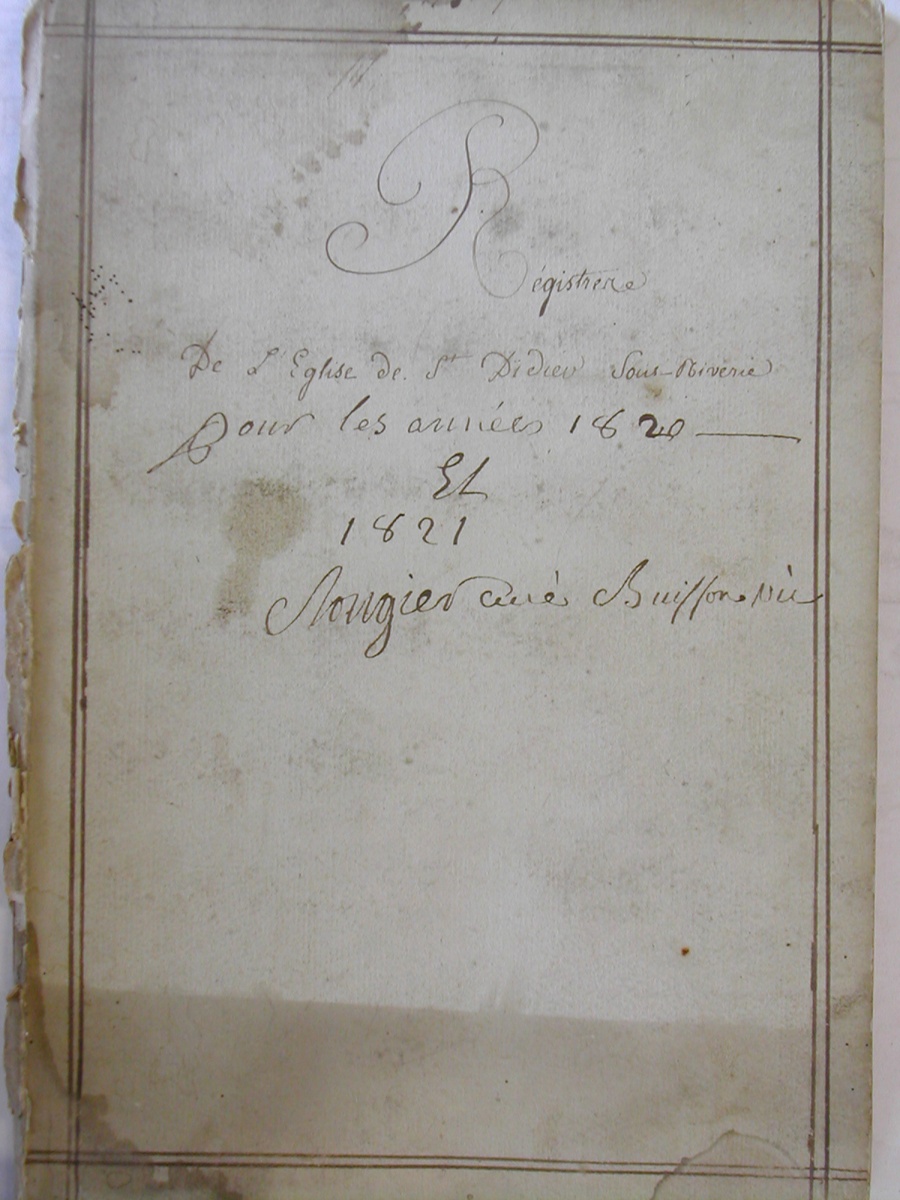 Régistre
De L'Eglise de St Didier Sous-Riverie
pour les années 1820
Et
1821
Rougier curé Buisson vic